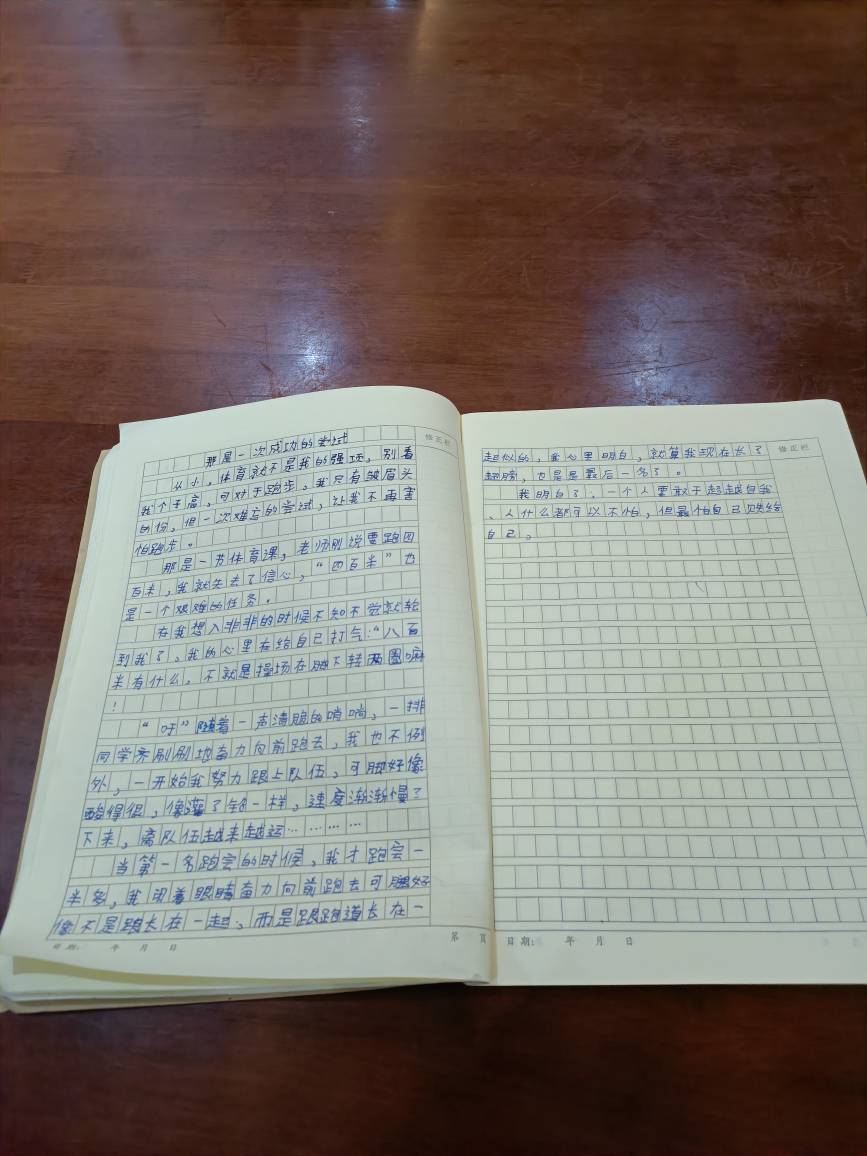 那是一次成功的尝试
修正栏
从小，体育就不是我的强项，别看
我个子高，可对于跑步，我只有皱眉头
的份，但一次难忘的尝试，让我不再害
怕跑步。
那是一节体育课，老师刚说要跑四
百米，我就失去了信心，“四百米”也
是一个艰难的任务。
在我想入非非的时候不知不觉就轮
到我了。我的心里在给自己打气：“八百
米有什么，不就是操场在脚下转两圈嘛
！
“吁”随着一声清脆的哨响，一排
同学齐刷刷地奋力向前跑去，我也不例
外，一开始我努力跟上队伍，可脚好像
酸得很，像灌了铅一样，速度渐渐慢了
下来，离队伍越来越远…………
当第一名跑完的时候，我才跑完一
半多，我闭着眼睛奋力向前跑去可腿好
像不是跟长在一起，而是跟跑道长在一
日期： 年 月 日
第 页
修正栏
起似的，我心里明白，就算我现在长了
翅膀，也是是最后一名了。
我明白了，一个人要敢于超越自我
、人什么都可以不怕，但最怕自己败给
自己。
日期： 年 月 日